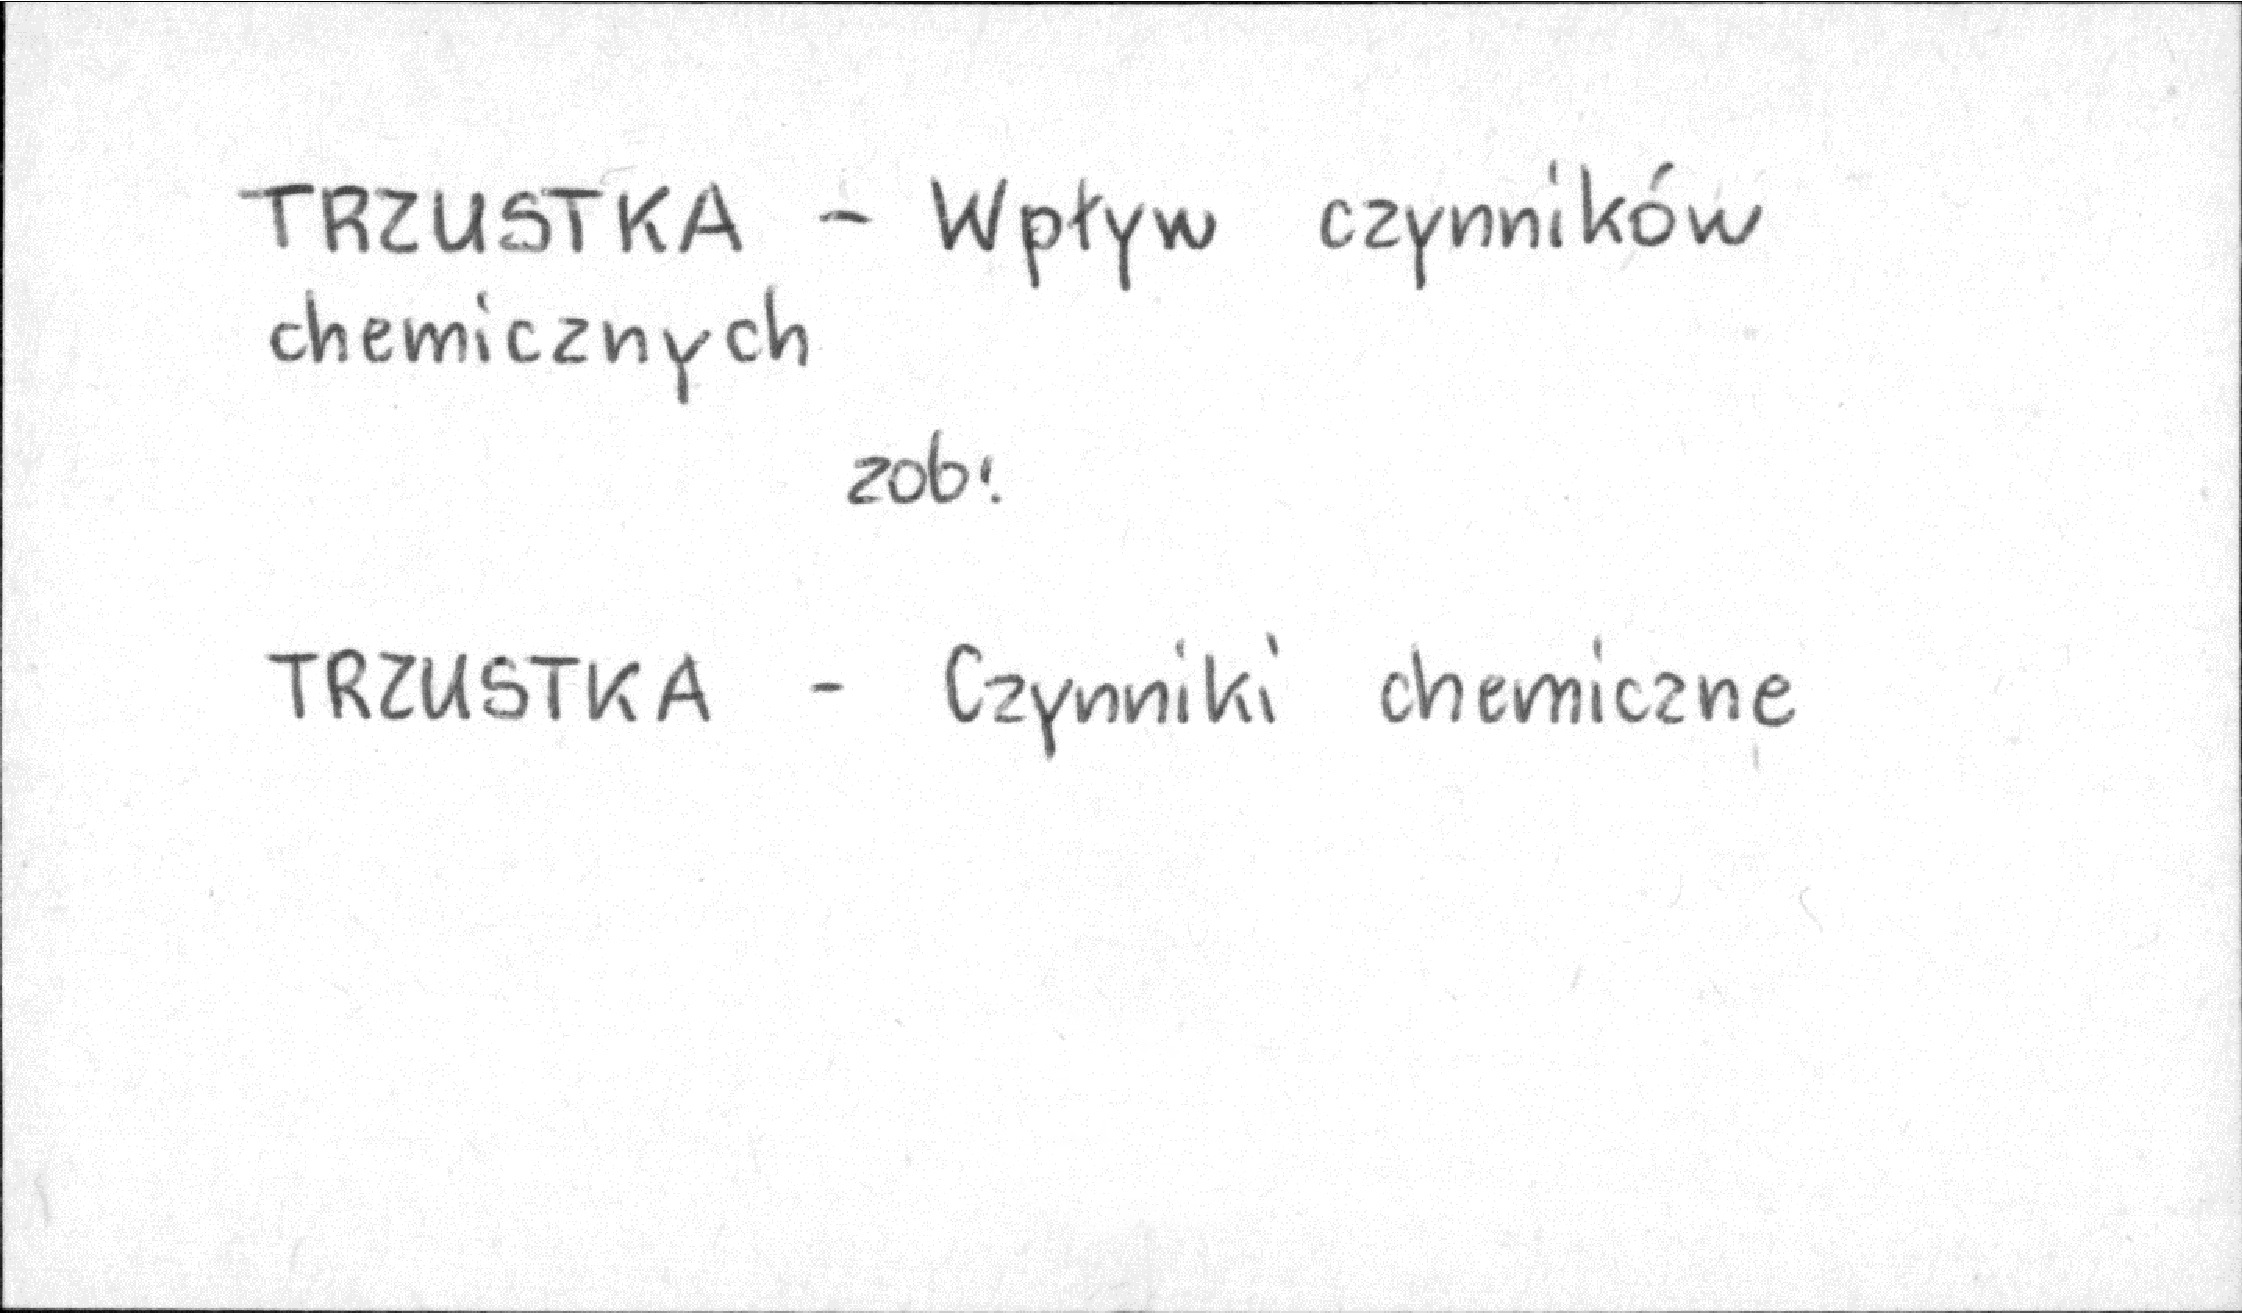 TRZUSTKA - Wpływ czynników
chemicznych
zob:
TRZUSTKA - Czynniki chemiczne